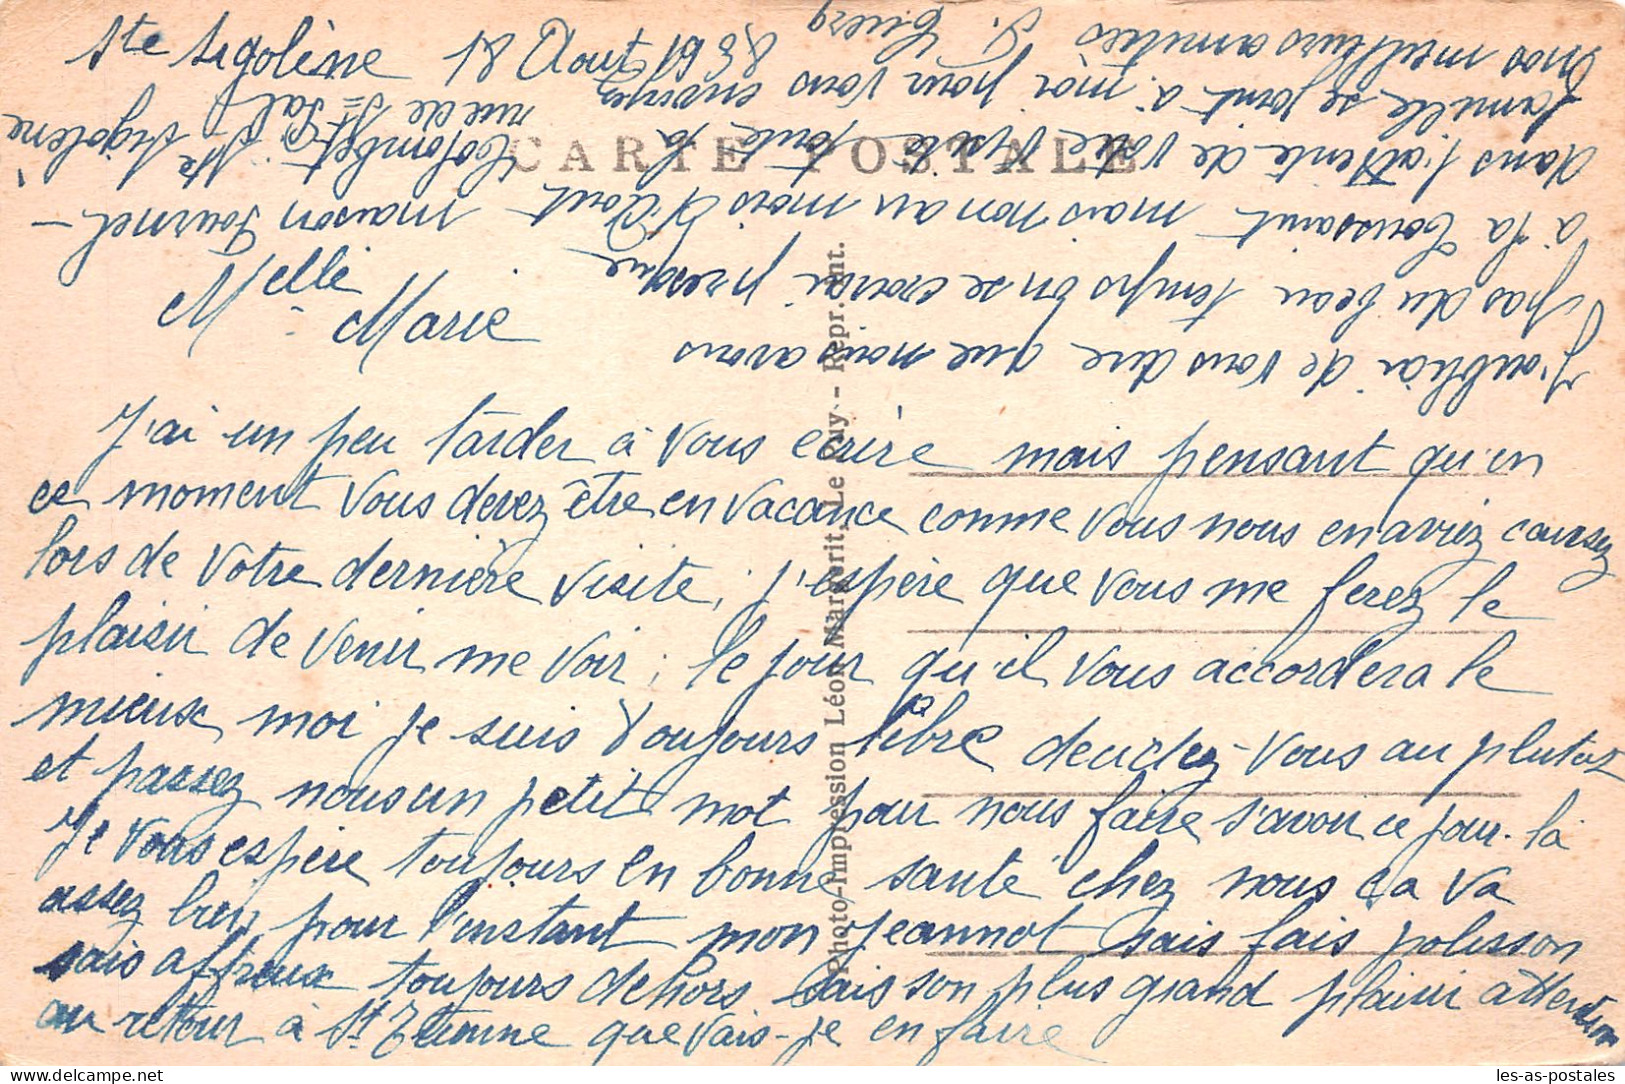 Ste Sigolène 18 Aout 1938
CARTE POSTALE
Melle Marie
J'ai un peu tarder à vous écrire mais pensant qu'en
ce moment vous devez être en vacance comme vous nous en aviez causez
lors de votre dernière visite, j'espère que vous me ferez le
plaisir de venir me voir; le jour qu'il vous accordera le
mieux moi je suis toujours libre decidez-vous au plutot
et passez nous un petit mot pour nous faire savoir ce jour là
Je vous espère toujours en bonne santé chez nous ça va
assez bien pour l'instant mon Jeannot sais fais polisson
sais affreux toujours dehors sais son plus grand plaisir attention
au retour à St Etienne que vais-je en faire
J'oubliai de vous dire que nous avons
pas du beau temps on se croirai presque
à la Toussaint mais non au mois d'Aout
dans l'attente de votre visite toute la
famille se joint à moi pour vous envoyez
nos meilleurs amitiés
maison Fournel
rue de St Pal
Ste Sigolène
Photo-Impression Léon Margerit, Le Puy - Repr. int.
les-as-postales